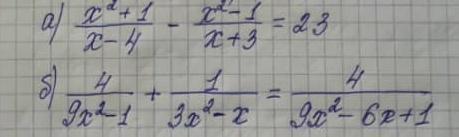 а) (x²+1)/(x-4) - (x²-1)/(x+3) = 23
б) 4/(9x²-1) + 1/(3x²-x) = 4/(9x²-6x+1)